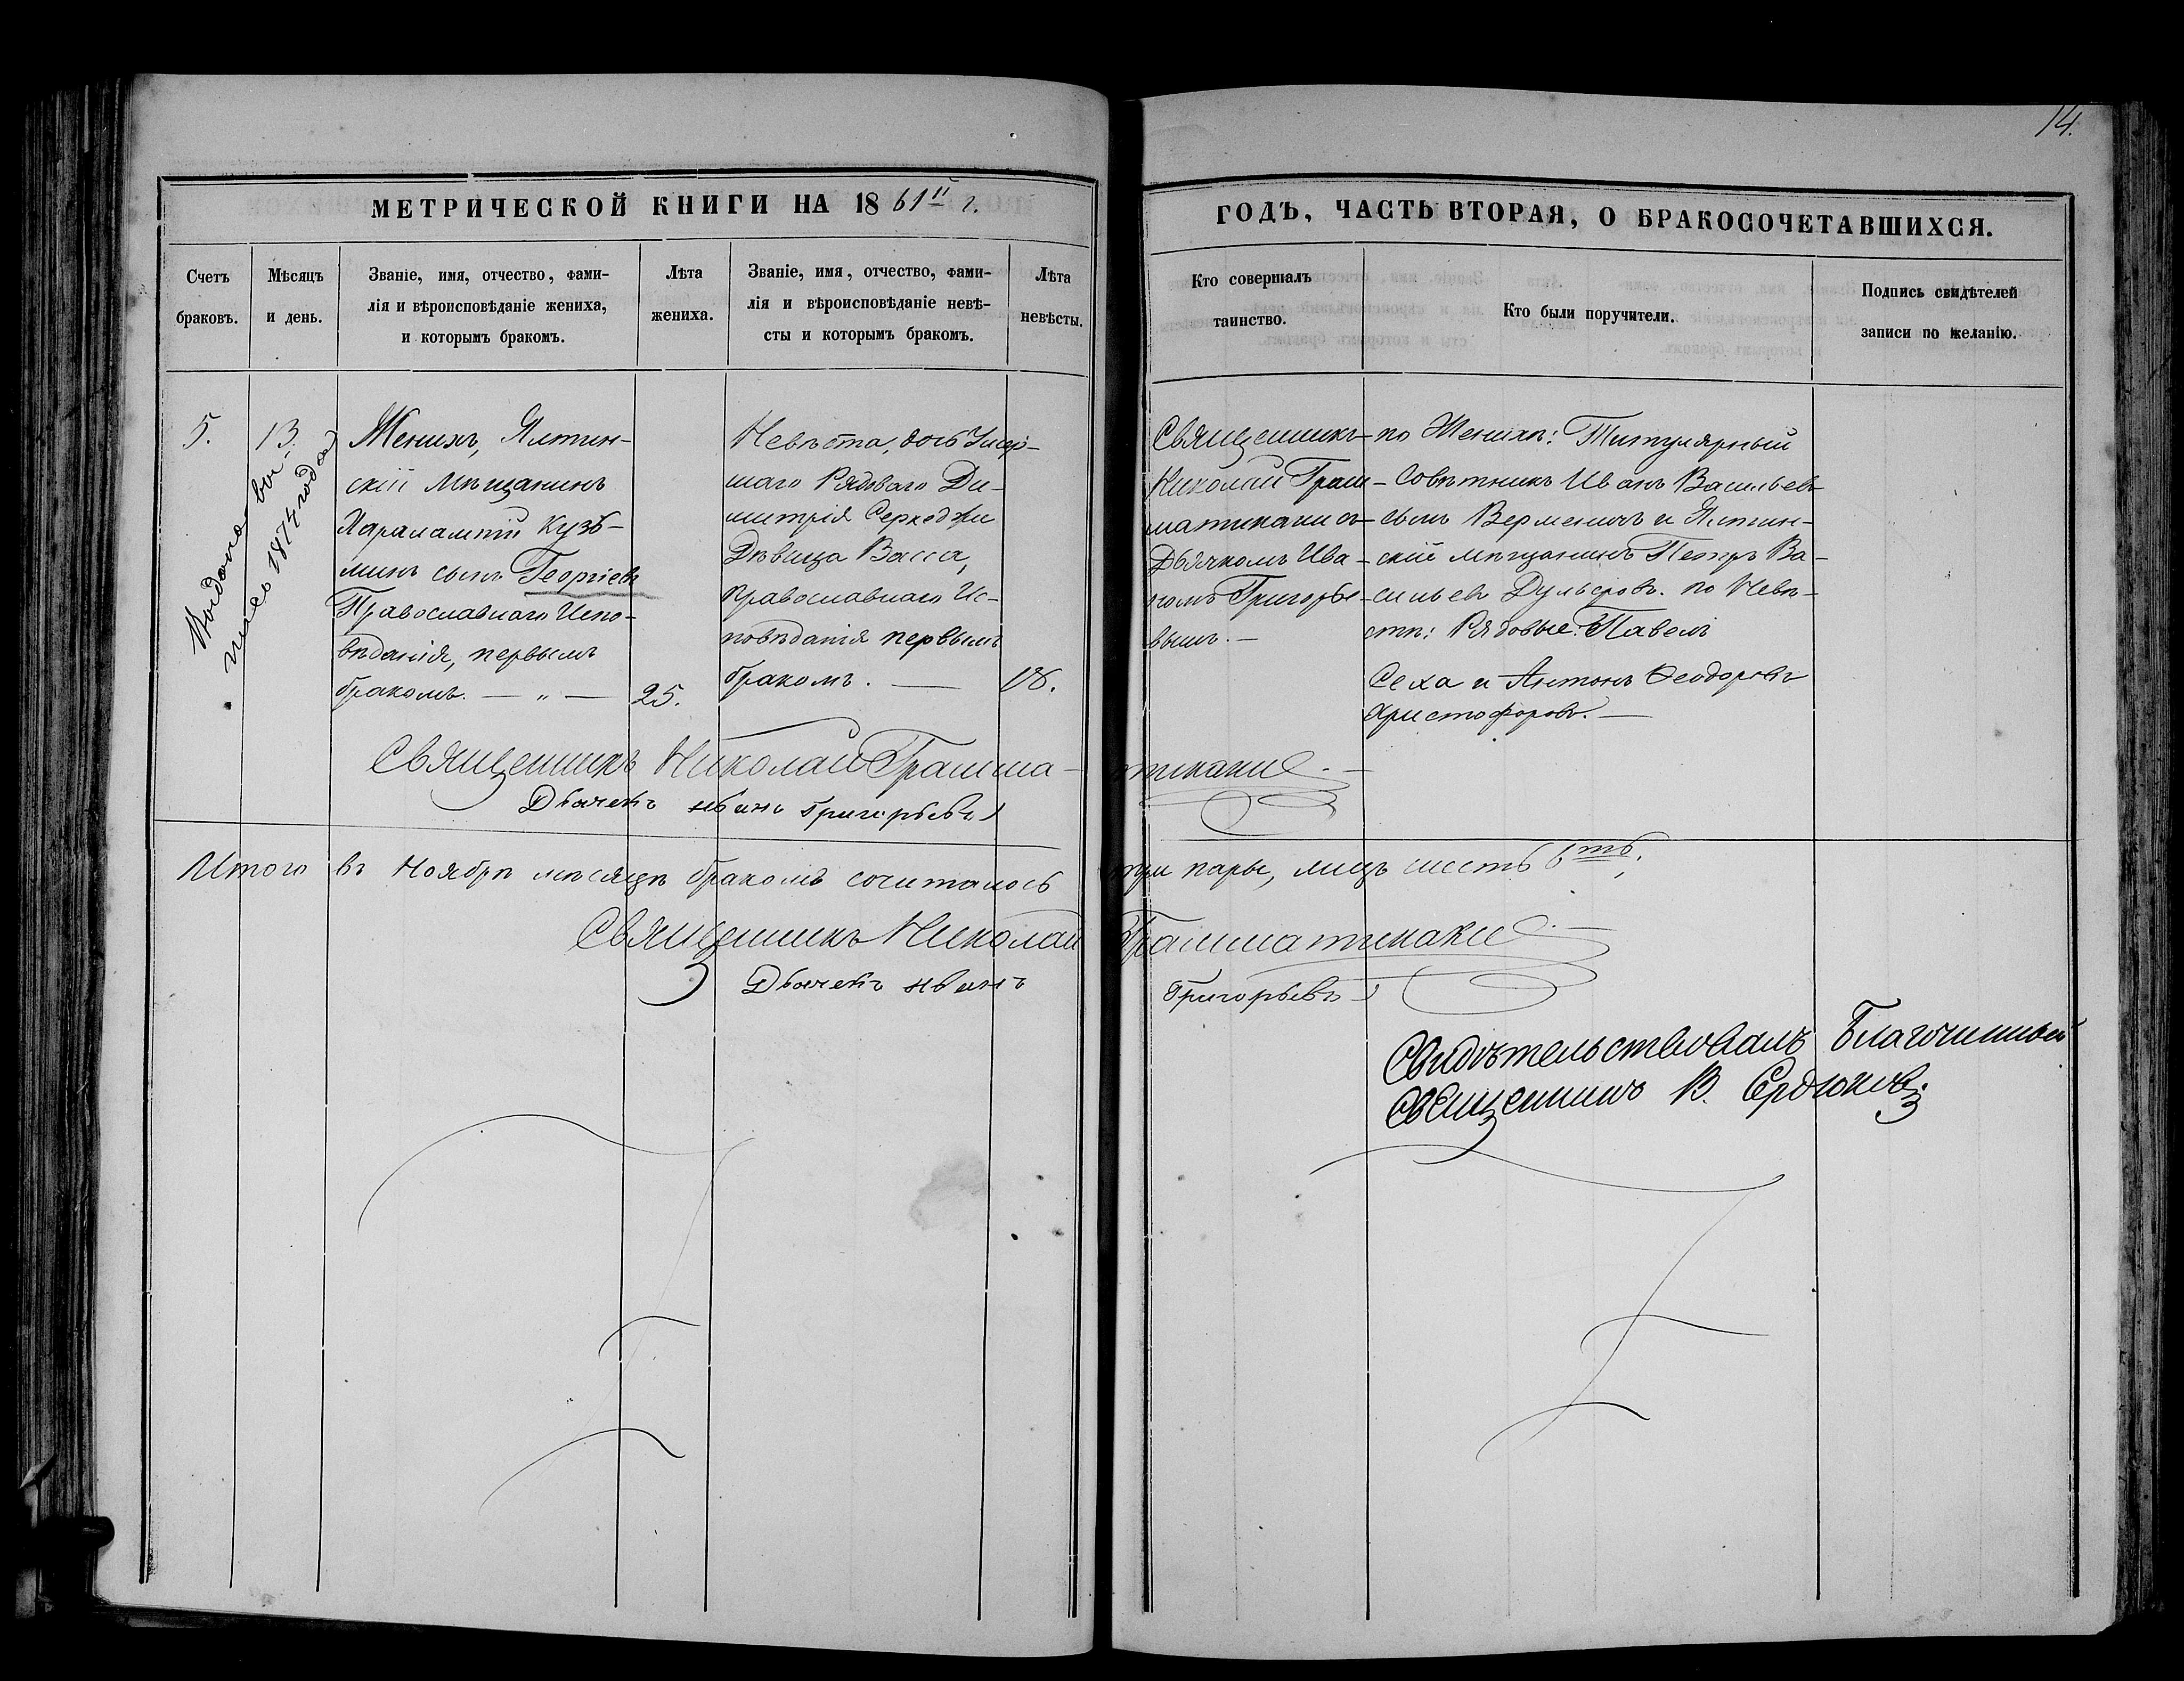 14.
МЕТРИЧЕСКОЙ КНИГИ НА 1861й г.
ГОДЪ, ЧАСТЬ ВТОРАЯ, О БРАКОСОЧЕТАВШИХСЯ.
Счетъ
браковъ.
Мѣсяцъ
и день.
Званіе, имя, отчество, фами-
лія и вѣроисповѣданіе жениха,
и которымъ бракомъ.
Лѣта
жениха.
Званіе, имя, отчество, фами-
лія и вѣроисповѣданіе невѣ-
сты и которымъ бракомъ.
Лѣта
невѣсты.
Кто совершалъ
таинство.
Кто были поручители.
Подпись свидѣтелей
записи по желанію.
5.
13.
Выдана вы-
пись 1874 года
Женихъ, Ялтин-
скій Мѣщанинъ
Харалампій Кузь-
минъ сынъ Георгіевъ
Православнаго Испо-
вѣданія, первымъ
бракомъ. — „ —
25.
Невѣста, дочь Умер-
шаго Рядоваго Ди-
митрія
Дѣвица Васса,
Православнаго Ис-
повѣданія первымъ
бракомъ. —
18.
Священникъ
Николай Грам-
матикаки съ
Дьячкомъ Ива-
номъ Григорье-
вымъ. —
по Женихѣ: Титулярный
Совѣтникъ Иванъ Васильевъ
сынъ и Ялтин-
скій мѣщанинъ Петръ Ва-
сильевъ по Невѣ-
стѣ: Рядовые: Павелъ
Сеха и Антонъ Ѳеодоровъ
Христофоровъ. —
Священникъ Николай Грамма-тикаки
Дьячекъ Иванъ Григорьевъ
Итого въ Ноябрѣ мѣсяцѣ бракомъ сочиталось три пары, лицъ шесть 6ть.
Священникъ Николай Грамматикаки
Дьячекъ Иванъ Григорьевъ
Свидѣтельствовалъ Благочинный
Священникъ В. Сердюковъ